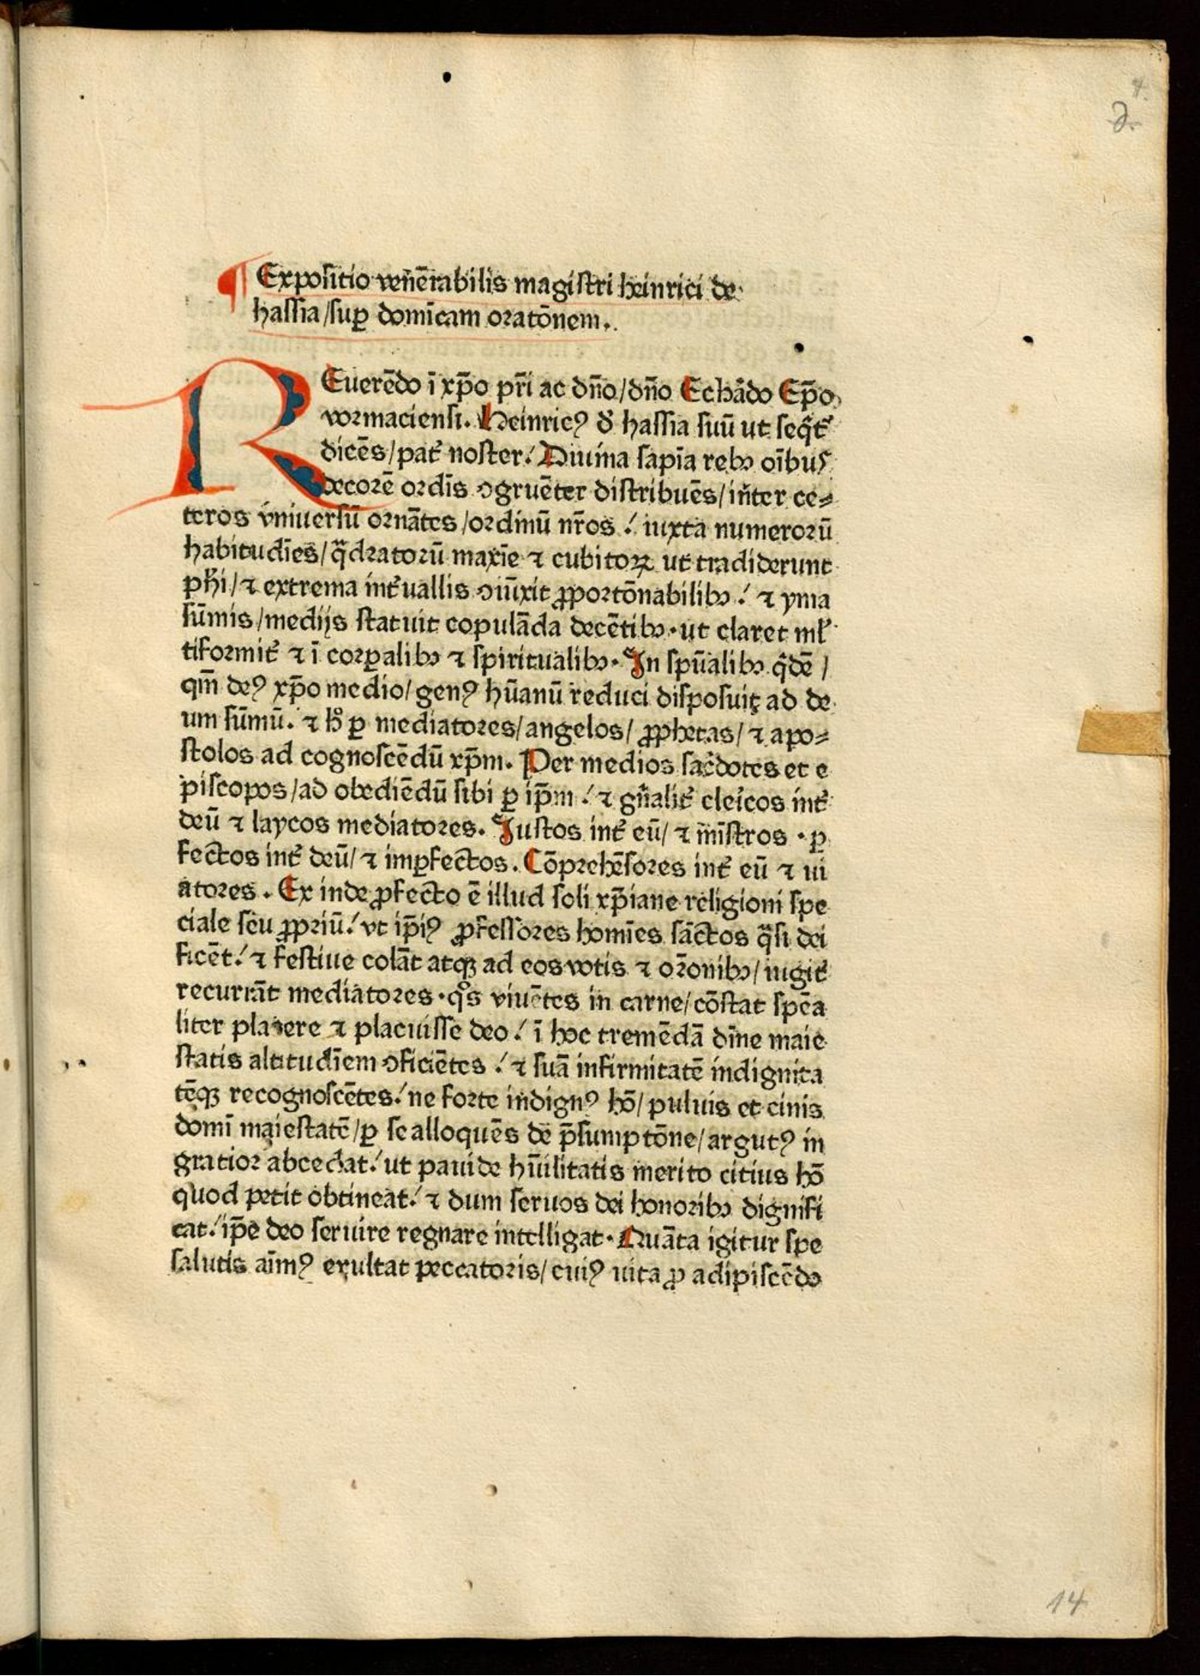 4.
¶ Expositio veńerabilis magistri heinrici de
hassia/sup̲ domīcam oratōnem.
REuerēdo ī xp̄o pr̄i ac dn̄o/dn̄o Eckādo Ep̄o
vormaciensi. Heinricꝰ d̓ hassia suū ut seq̄t᷑
dicēs/pat᷑ noster! Diuina sapīa rebꝫ oībus
decorē ordīs ꝯgruēter distribuēs/int̄er ce⸗
teros vniuersū ornātes/ordinū nr̄os! iuxta numerorū
habitudīes/q̄dratorū maxīe ⁊ cubitoꝝ ut tradiderunt
phī/⁊ extrema int᷑uallis ꝯiūxit ꝓportōnabilibꝫ! ⁊ yma
sūmis/medijs statuit copulāda decētibꝫ. ut claret ml᷑
tiformit᷑ ⁊ ī corꝑalibꝫ ⁊ spiritualibꝫ. In spūalibꝫ q̄dē/
qm̄ deꝰ xp̄o medio/genꝰ hūanū reduci disposuit ad de
um sūmū. ⁊ h̓ ꝑ mediatores/angelos/ꝓphetas/⁊ apo⸗
stolos ad cognoscēdū xp̄m. Per medios sac̓dotes et e
piscopos/ad obediēdū sibi ꝑ ip̄m! ⁊ gn̄alit᷑ cleicos int᷑
deū ⁊ laycos mediatores. Iustos int᷑ eū/⁊ mīstros . ꝑ
fectos int᷑ deū/⁊ imꝑfectos. Cōprehēsores int᷑ eū ⁊ ui
atores. Ex inde ꝓfecto ē illud soli xp̄iane religioni spe
ciale seu ꝓpriū! vt ip̄iꝰ ꝓfessores homīes sāctos q̄si dei
ficēt! ⁊ festiue colāt atqꝫ ad eos votis ⁊ or̄onibꝫ/iugit᷑
recurrāt mediatores. q̊s viuētes in carne/cōstat spēa
liter placere ⁊ placuisse deo! ī hoc tremēdā dīne maie
statis altitudīem ꝯficiētes! ⁊ suā infirmitatē indignita
tēqꝫ recognoscētes! ne forte indignꝰ hō/puluis et cinis
domī maiestatē/ꝑ se alloquēs de p̄sumptōne/argutꝰ in
gratior abcedat! ut pauide hūilitatis merito citius hō
quod petit obtineat! ⁊ dum seruos dei honoribꝫ dignifi
cat! ip̄e deo seruire regnare intelligat. Quāta igitur spe
salutis aīmꝰ exultat peccatoris/cuiꝰ uita ꝓ adipiscēdo
14